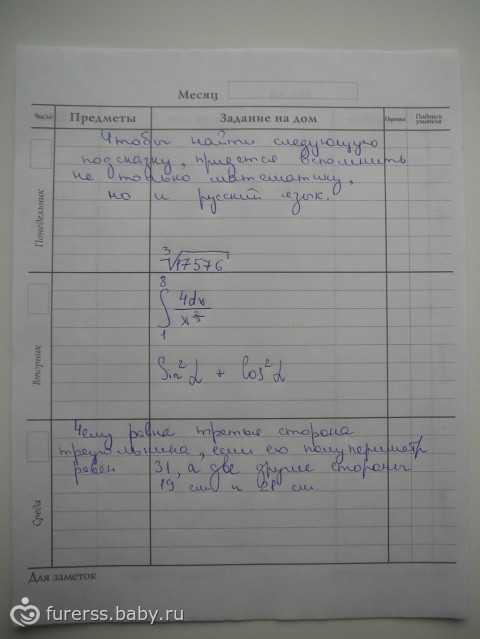 Месяц
Число Предметы Задание на дом Оценка Подпись учителя
Чтобы найти следующую
подсказку, придется вспомнить
не только математику,
но и русский язык.
Понедельник
∛17576
Вторник
∫₁⁸ 4dx/x^(2/3)
Sin²α + cos²α
Чему равна третья сторона
треугольника, если его полупериметр
равен 31, а две другие стороны
19 см и 21 см.
Среда
Для заметок
furerss.baby.ru